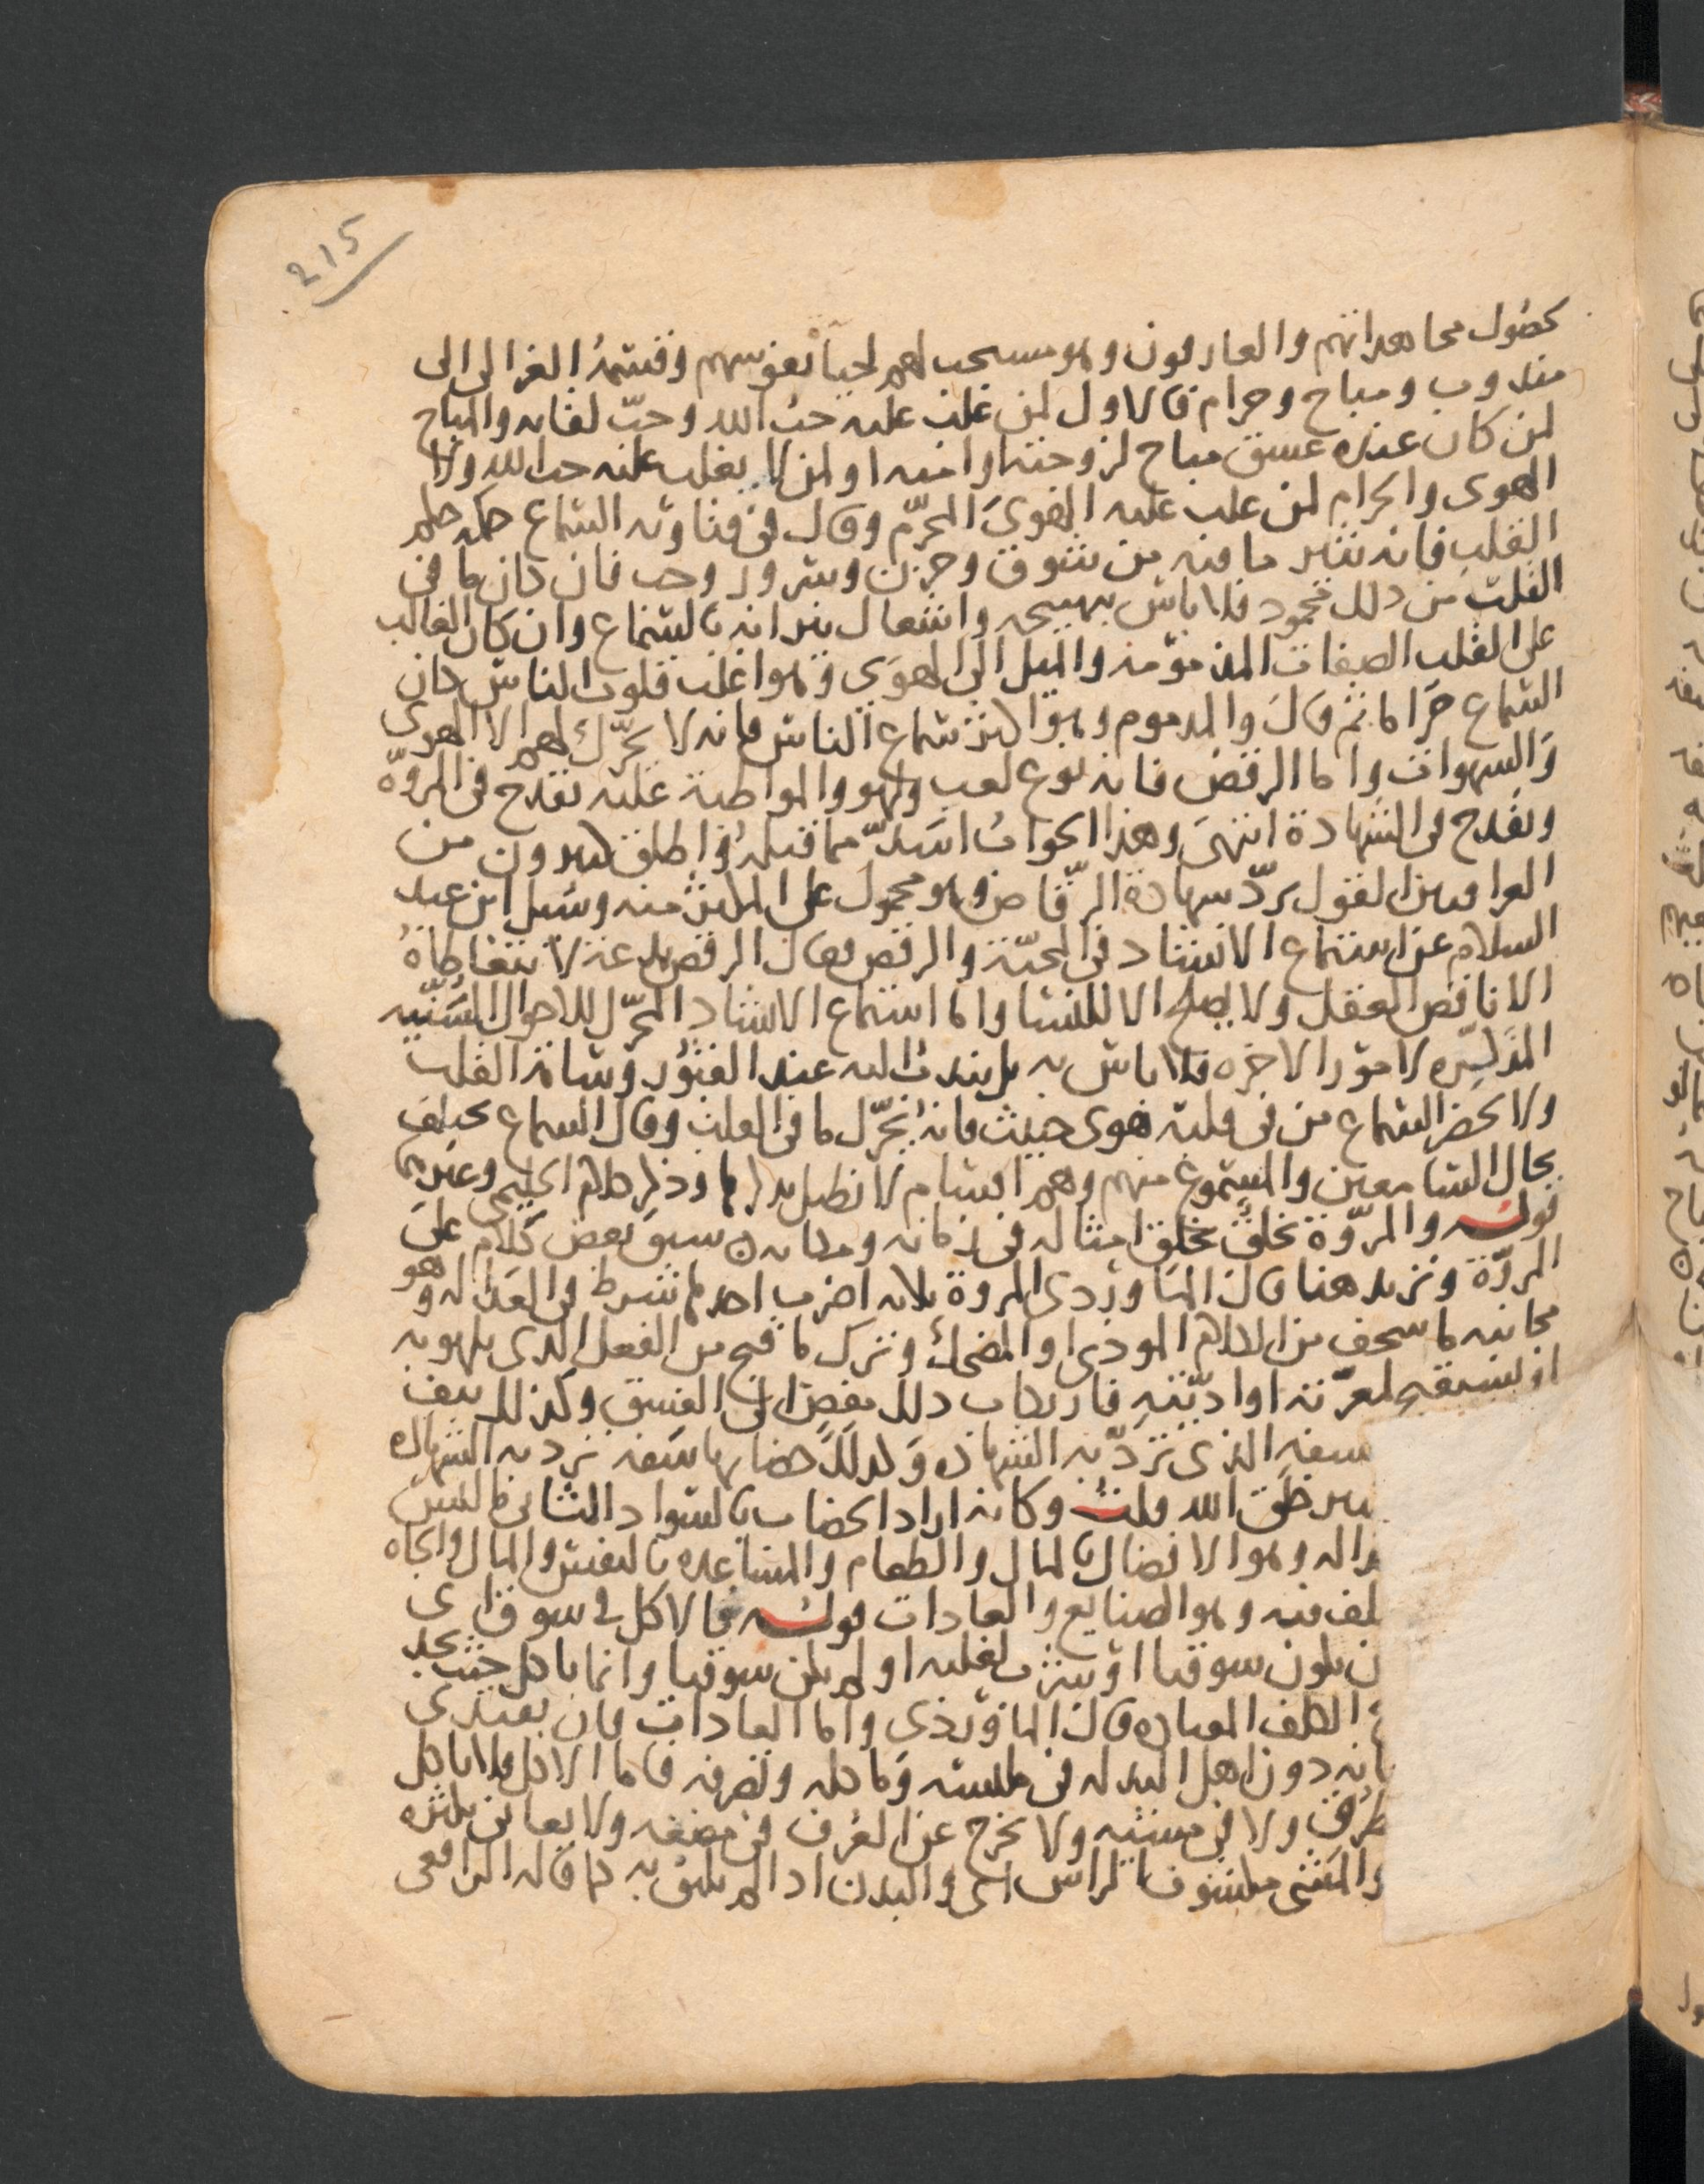 215
لحصول مجاهداتهم والعارفون وهو مستحب لهم لحياة نفوسهم وقسمه الغزالي الى
مندوب ومباح وحرام فالاول لمن غلب عليه حب الله وحب لقائه والمباح
لمن كان عنده عشق مباح لزوجته او امته او لمن لا يغلب عليه حب الله ولا
الهوى والحرام لمن غلب عليه الهوى المحرم وقال في فتاويه السماع حكمه حكم
القلب فانه يثير ما فيه من شوق وحزن وسرور وحب فان كان ما في
القلب من ذلك محمود فلا باس بتهييجه واشتعال نيرانه بالسماع وان كان الغالب
على القلب الصفات المذمومة والميل الى الهوى وهو اغلب قلوب الناس كان
السماع حراما ثم قال والمذموم وهو اكثر سماع الناس فانه لا يحرك لهم الا الهوى
والشهوات واما الرقص فانه نوع لعب ولهو والمواظبة عليه تقدح في المروة
وتقدح في الشهادة انتهى وهذا الجواب اسد مما قبله واطلق كثيرون من
العراقيين القول برد شهادة الرقاص وهو محمول على المكثر منه وسئل ابن عبد
السلام عن استماع الانشاد في المحبة والرقص فقال الرقص بدعة لا يتعاطاه
الا ناقص العقل ولا يصلح الا للنسا واما استماع الانشاد المحرك للاحوال السنية
المذكرة لامور الاخرة فلا باس به بل يندب اليه عند الفتور وسامة القلب
ولا يحضر السماع من في قلبه هوى خبيث فانه يحرك ما في القلب وقال السماع يختلف
بحال السامعين والمسموع منهم وهم اقسام لا نطيل بذكرها وذكر كلام الحليمي وغيرهما
قوله والمروة تخلق بخلق امثاله في زمانه ومكانه سبق بعض كلام على
المروة ونزيد هنا قال الماوردي المروة ثلاثة اضرب احدها شرط في العدالة وهو
مجانبه ما سخف من الكلام الموذي او المضحك وترك ما قبح من الفعل الذي يلهو به
او يستقبح لمعرته او اديته فارتكاب ذلك مفض الى الفسق وكذلك نتف
سفه الذي ترد به الشهاده وكذلك خضابها سفه ترد به الشهاده
خلق الله قلت وكانه اراد الخضاب بالسواد الثاني ما ليس
وهو الافضال بالمال والطعام والمساعده بالنفس والمال والجاه
فيه وهو الصنايع والعادات قوله فالاكل في سوق اي
ن يكون سوقيا او شرب لغلبه او لم يكن سوقيا وانما ياكل حيث يجد
العباره قال الماوردي واما العادات فان يقتدي
دون اهل البذله في ملبسه وماكله وتصرفه فاما الاكل فلا ياكل
طرق ولا في مشيه ولا يخرج عن العرف في مضغه ولا يعاني بكثره
والمشي مكشوف الراس اي والبدن اذا لم يلق به كما قاله الرافعي